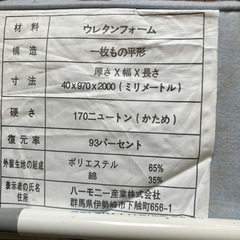 材料 ウレタンフォーム
構造 一枚もの平形
寸法 厚さX幅X長さ
40x970x2000（ミリメートル）
硬さ 170ニュートン（かため）
復元率 93パーセント
外装生地の組成 ポリエステル 65%
綿 35%
表示者の氏名 ハーモニー産業株式会社
住所 群馬県伊勢崎市下触町656-1